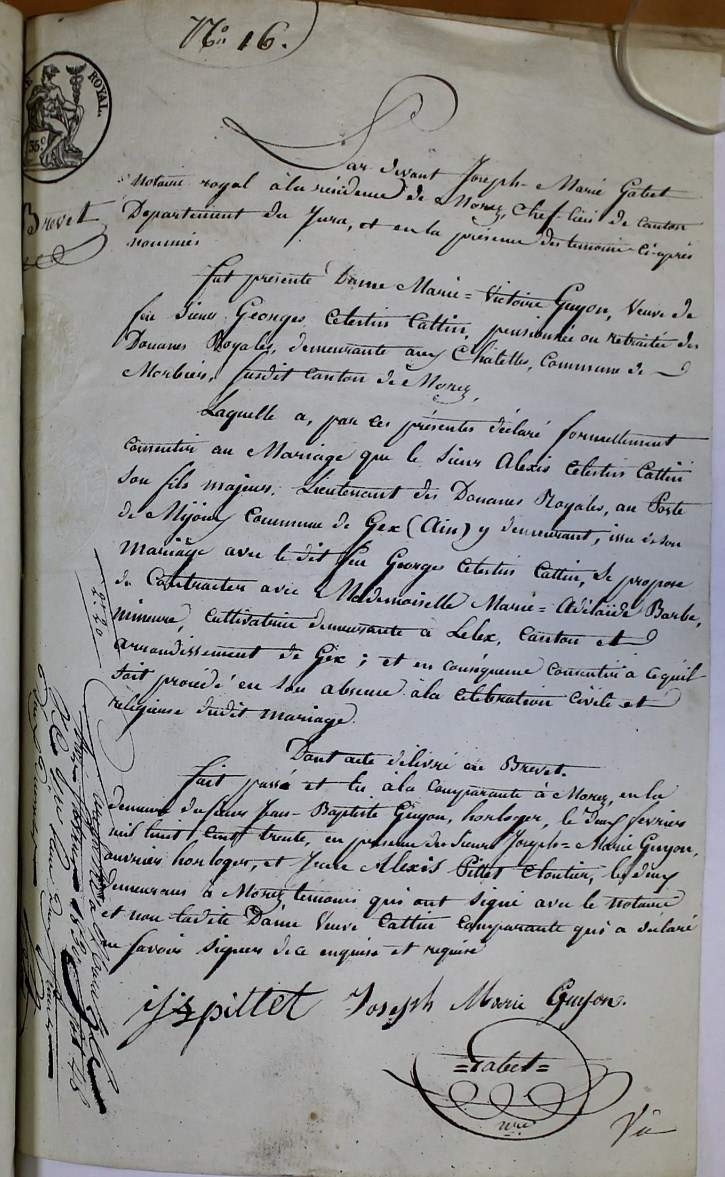 N.o 16.
ROYAL.
35c
Brevet
Par devant Joseph-Marie Gabet
notaire royal à la résidence de Morez, chef-lieu de canton
Departement du Jura, et en la présence des temoins ci-après
nommés
fut présente Dame Marie=Victoire Guyon, Veuve de
feu Sieur Georges Celestin Cattin, pensionnée ou retraitée des
Douanes Royales, demeurante aux Châtelles, Commune de
Morbier, susdit canton de Morez,
Laquelle a, par ces présentes déclaré formellement
consentir au Mariage que le Sieur Alexis Celestin Cattin
son fils majeur, Lieutenant des Douanes Royales, au Poste
de Mijoux Commune de Gex (Ain) y demeurant, issu de son
mariage avec le dit feu Georges Celestin Cattin, se propose
de Contracter avec Mademoiselle Marie=Adélaïde Barbe,
mineure, cultivatrice demeurante à Lelex, canton et
arrondissement de Gex; et en conséquence consentir à ce qu'il
soit procédé en son absence à la celebration civile et
religieuse dudit mariage.
Dont acte délivré en Brevet.
fait passé et lu à la comparante à Morez, en la
demeure du sieur Jean-Baptiste Guyon, horloger, le deux février
mil huit cent trente, en présence des Sieurs Joseph=Marie Guyon,
ouvrier horloger, et Jean Alexis Pillet Cloutier, les deux
demeurans à Morez, temoins qui ont signé avec le notaire
et non ladite Dame Veuve Cattin comparante qui a déclaré
ne savoir signer de ce enquise et requise
pillet Joseph Marie Guyon.
=Gabet=
nre